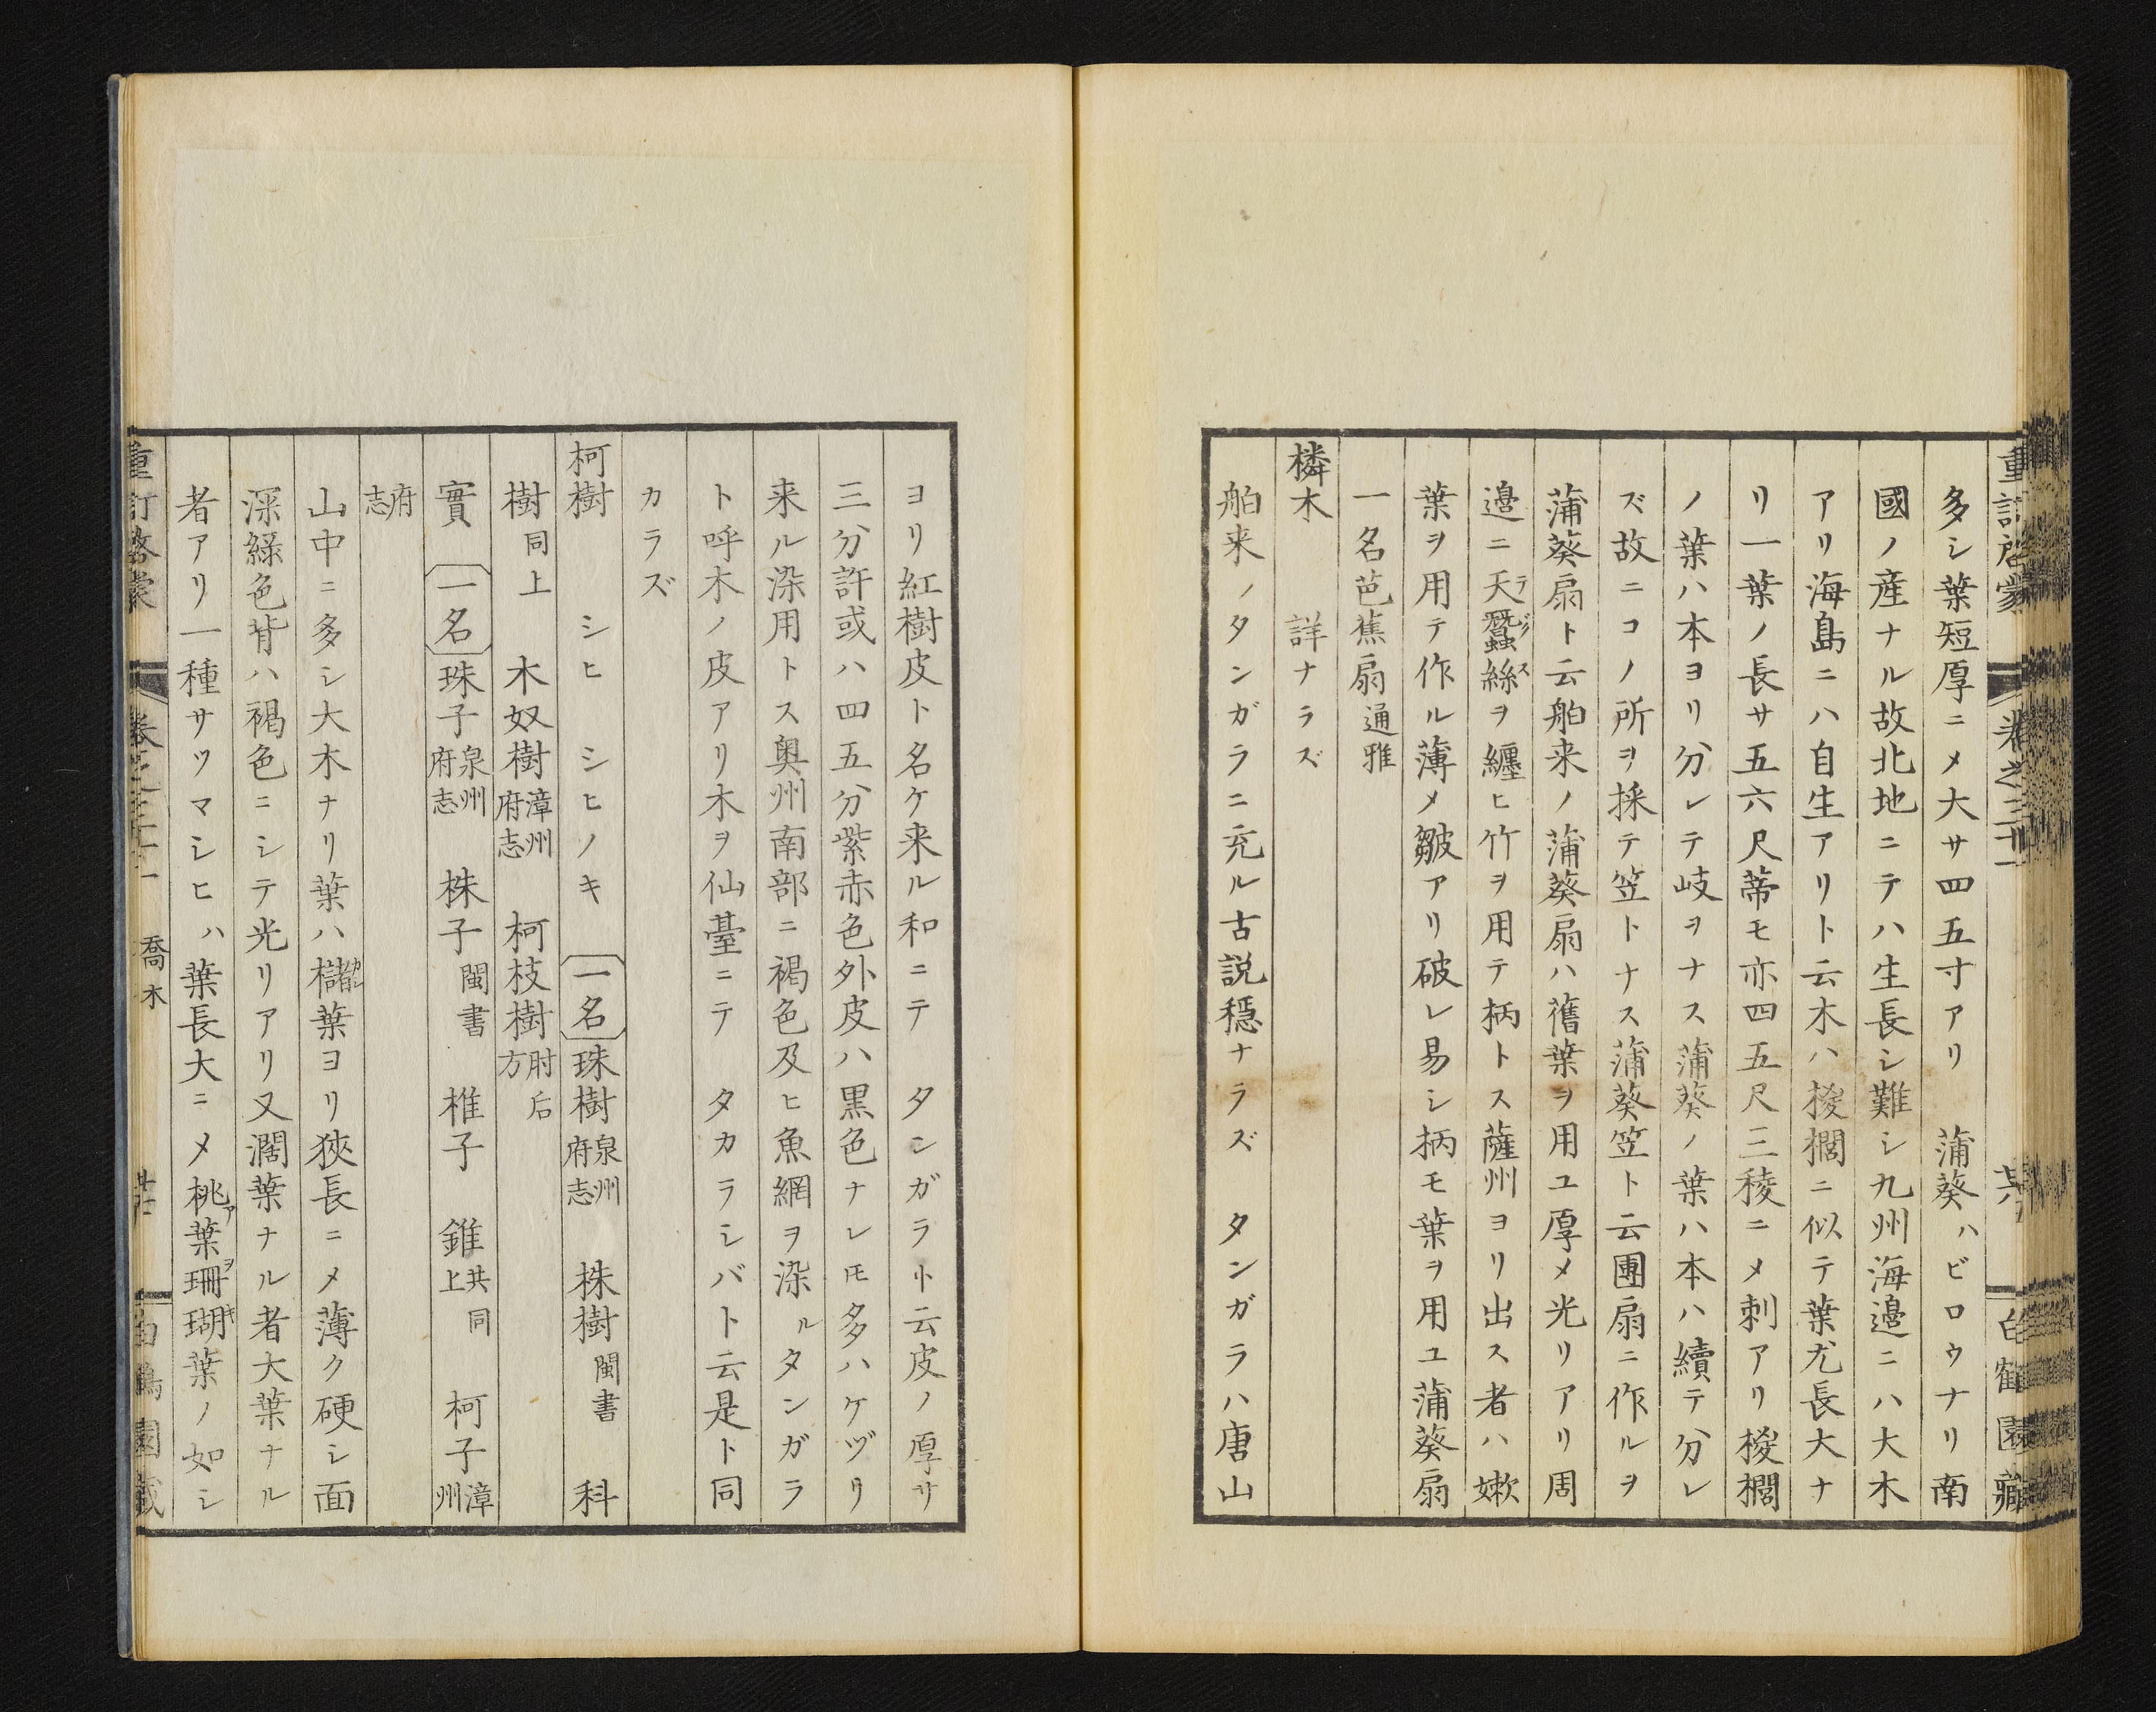 多シ葉短厚ニメ大サ四五寸アリ　蒲葵ハビロウナリ南
國ノ産ナル故北地ニテハ生長シ難シ九州海邉ニハ大木
アリ海島ニハ自生アリト云木ハ椶櫚ニ似テ葉尤長大ナ
リ一葉ノ長サ五六尺蒂モ亦四五尺三稜ニメ刺アリ椶櫚
ノ葉ハ本ヨリ分レテ岐ヲナス蒲葵ノ葉ハ本ハ續テ分レ
ズ故ニコノ所ヲ採テ笠トナス蒲葵笠ト云團扇ニ作ルヲ
蒲葵扇ト云舶来ノ蒲葵扇ハ舊葉ヲ用ユ厚メ光リアリ周
邉ニ天蠶絲ヲ纏ヒ竹ヲ用テ柄トス薩州ヨリ出ス者ハ嫰
葉ヲ用テ作ル薄メ皺アリ破レ易シ柄モ葉ヲ用ユ蒲葵扇
一名芭蕉扇通雅
橉木　詳ナラズ
舶来ノタンガラニ充ル古説穏ナラズ　タンガラハ唐山
ヨリ紅樹皮ト名ケ来ル和ニテ　タンガラト云皮ノ厚サ
三分許或ハ四五分紫赤色外皮ハ黒色ナレ𪜈多ハケヅリ
来ル染用トス奥州南部ニ褐色及ヒ魚網ヲ染ルタンガラ
ト呼木ノ皮アリ木ヲ仙䑓ニテ　タカラシバト云是ト同
カラズ
柯樹　シヒ　シヒノキ　一名珠樹泉州府志　株樹閩書　科
樹同上　木奴樹漳州府志　柯枝樹肘后方
實　一名珠子泉州府志　株子閩書　椎子　錐共同上　柯子漳州
府志
山中ニ多シ大木ナリ葉ハ櫧葉ヨリ狹長ニメ薄ク硬シ面
深緑色背ハ褐色ニシテ光リアリ又濶葉ナル者大葉ナル
者アリ一種サツマシヒハ葉長大ニメ桃葉珊瑚葉ノ如シ
喬木